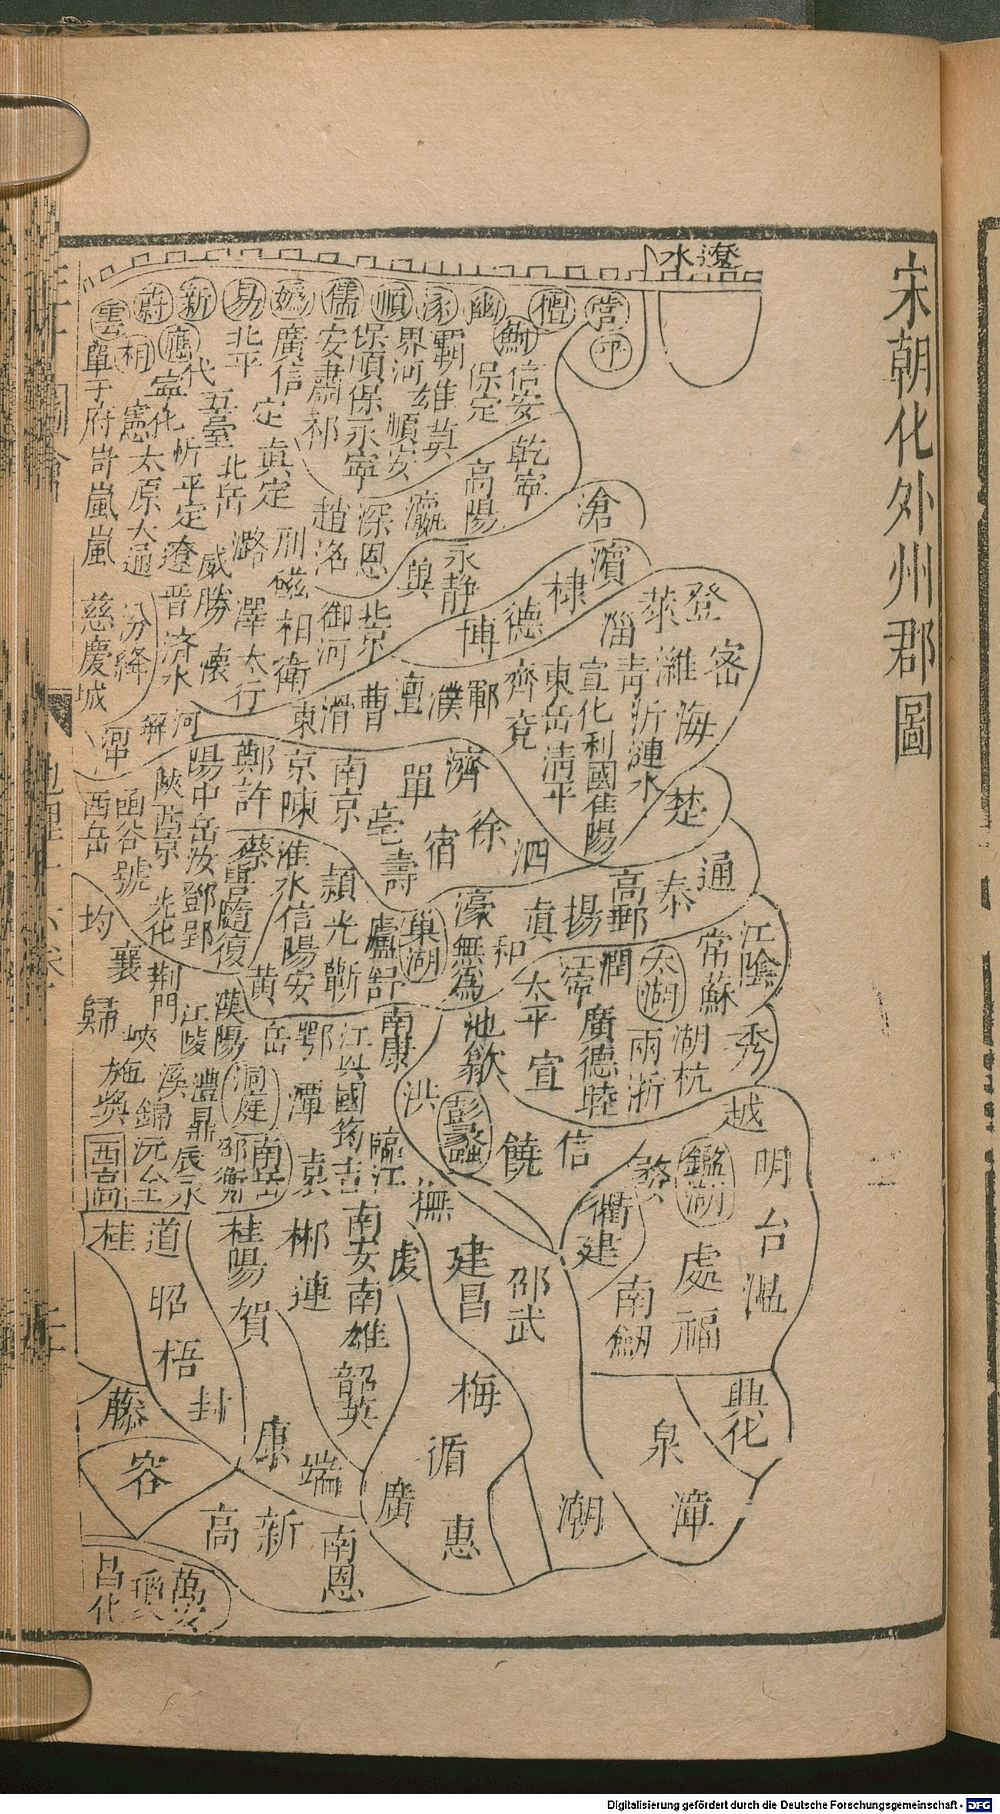 宋朝化外州郡圖
遼水
營
平
幽
涿
順
儒
嬀
易
新
蔚
雲
應
朔
信安
乾寧
保定
高陽
霸
雄
莫
界河
順安
保順
保
永寧
安肅
祁
廣信
定
真定
北平
北岳
代
五臺
寧化
忻
平定
遼
憲
太原
大通
單于府
岢嵐
嵐
滄
瀛
深
恩
趙
洺
邢
磁
相
潞
威勝
晋
濟水
汾
絳
慈
慶城
濱
棣
德
博
永靜
北京
御河
衛
澤
太行
懷
登
萊
密
濰
淄
青
沂
海
漣水
宣化
利國
淮陽
東岳
清平
齊
兗
鄆
濮
澶
曹
滑
東
河
解
楚
濟
單
徐
宿
泗
亳
南京
京
陳
鄭
許
陽
中岳
汝
鄧
郢
陝
西京
光化
函谷
虢
西岳
通
泰
高郵
揚
真
濠
無為
和
巢湖
壽
廬
舒
潁
光
蘄
淮水
信陽
安
黃
蔡
隨
復
均
襄
荊門
江陵
漢陽
歸
峽
江陰
常
蘇
太湖
潤
太平
宣
廣德
睦
池
歙
南康
江
興國
筠
吉
鄂
岳
潭
袁
洞庭
澧
鼎
施
秀
湖
杭
兩浙
越
明
台
溫
鑑湖
處
福
婺
衢
建
南劔
信
饒
彭蠡
洪
臨江
撫
建昌
邵武
南岳
邵
衡
辰
錦
沅
桂
道
昭
梧
封
桂陽
賀
郴
連
南安
南雄
韶
英
虔
梅
循
惠
廣
潮
興化
泉
漳
藤
容
康
端
新
高
南恩
萬安
瓊
昌化
Digitalisierung gefördert durch die Deutsche Forschungsgemeinschaft - DFG